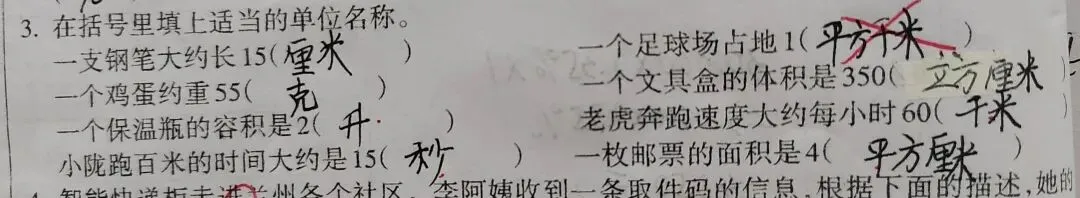 3. 在括号里填上适当的单位名称。
一支钢笔大约长15(厘米)
一个足球场占地1(平方千米)
一个鸡蛋约重55(克)
一个文具盒的体积是350(立方厘米)
一个保温瓶的容积是2(升.)
老虎奔跑速度大约每小时60(千米)
小陇跑百米的时间大约是15(秒)
一枚邮票的面积是4(平方厘米)
州各个社区,李阿姨收到一条取件码的信息,根据下面的描述,她的